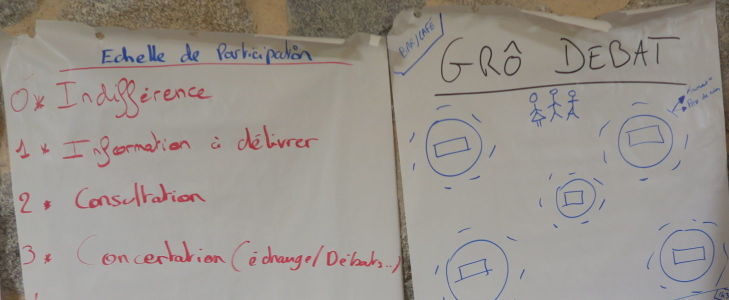 Echelle de Participation
0* Indifférence
1 * Information à délivrer
2 * Consultation
3 * Concertation (échange/Débats..)
BAR/CAFÉ
GRÔ DEBAT